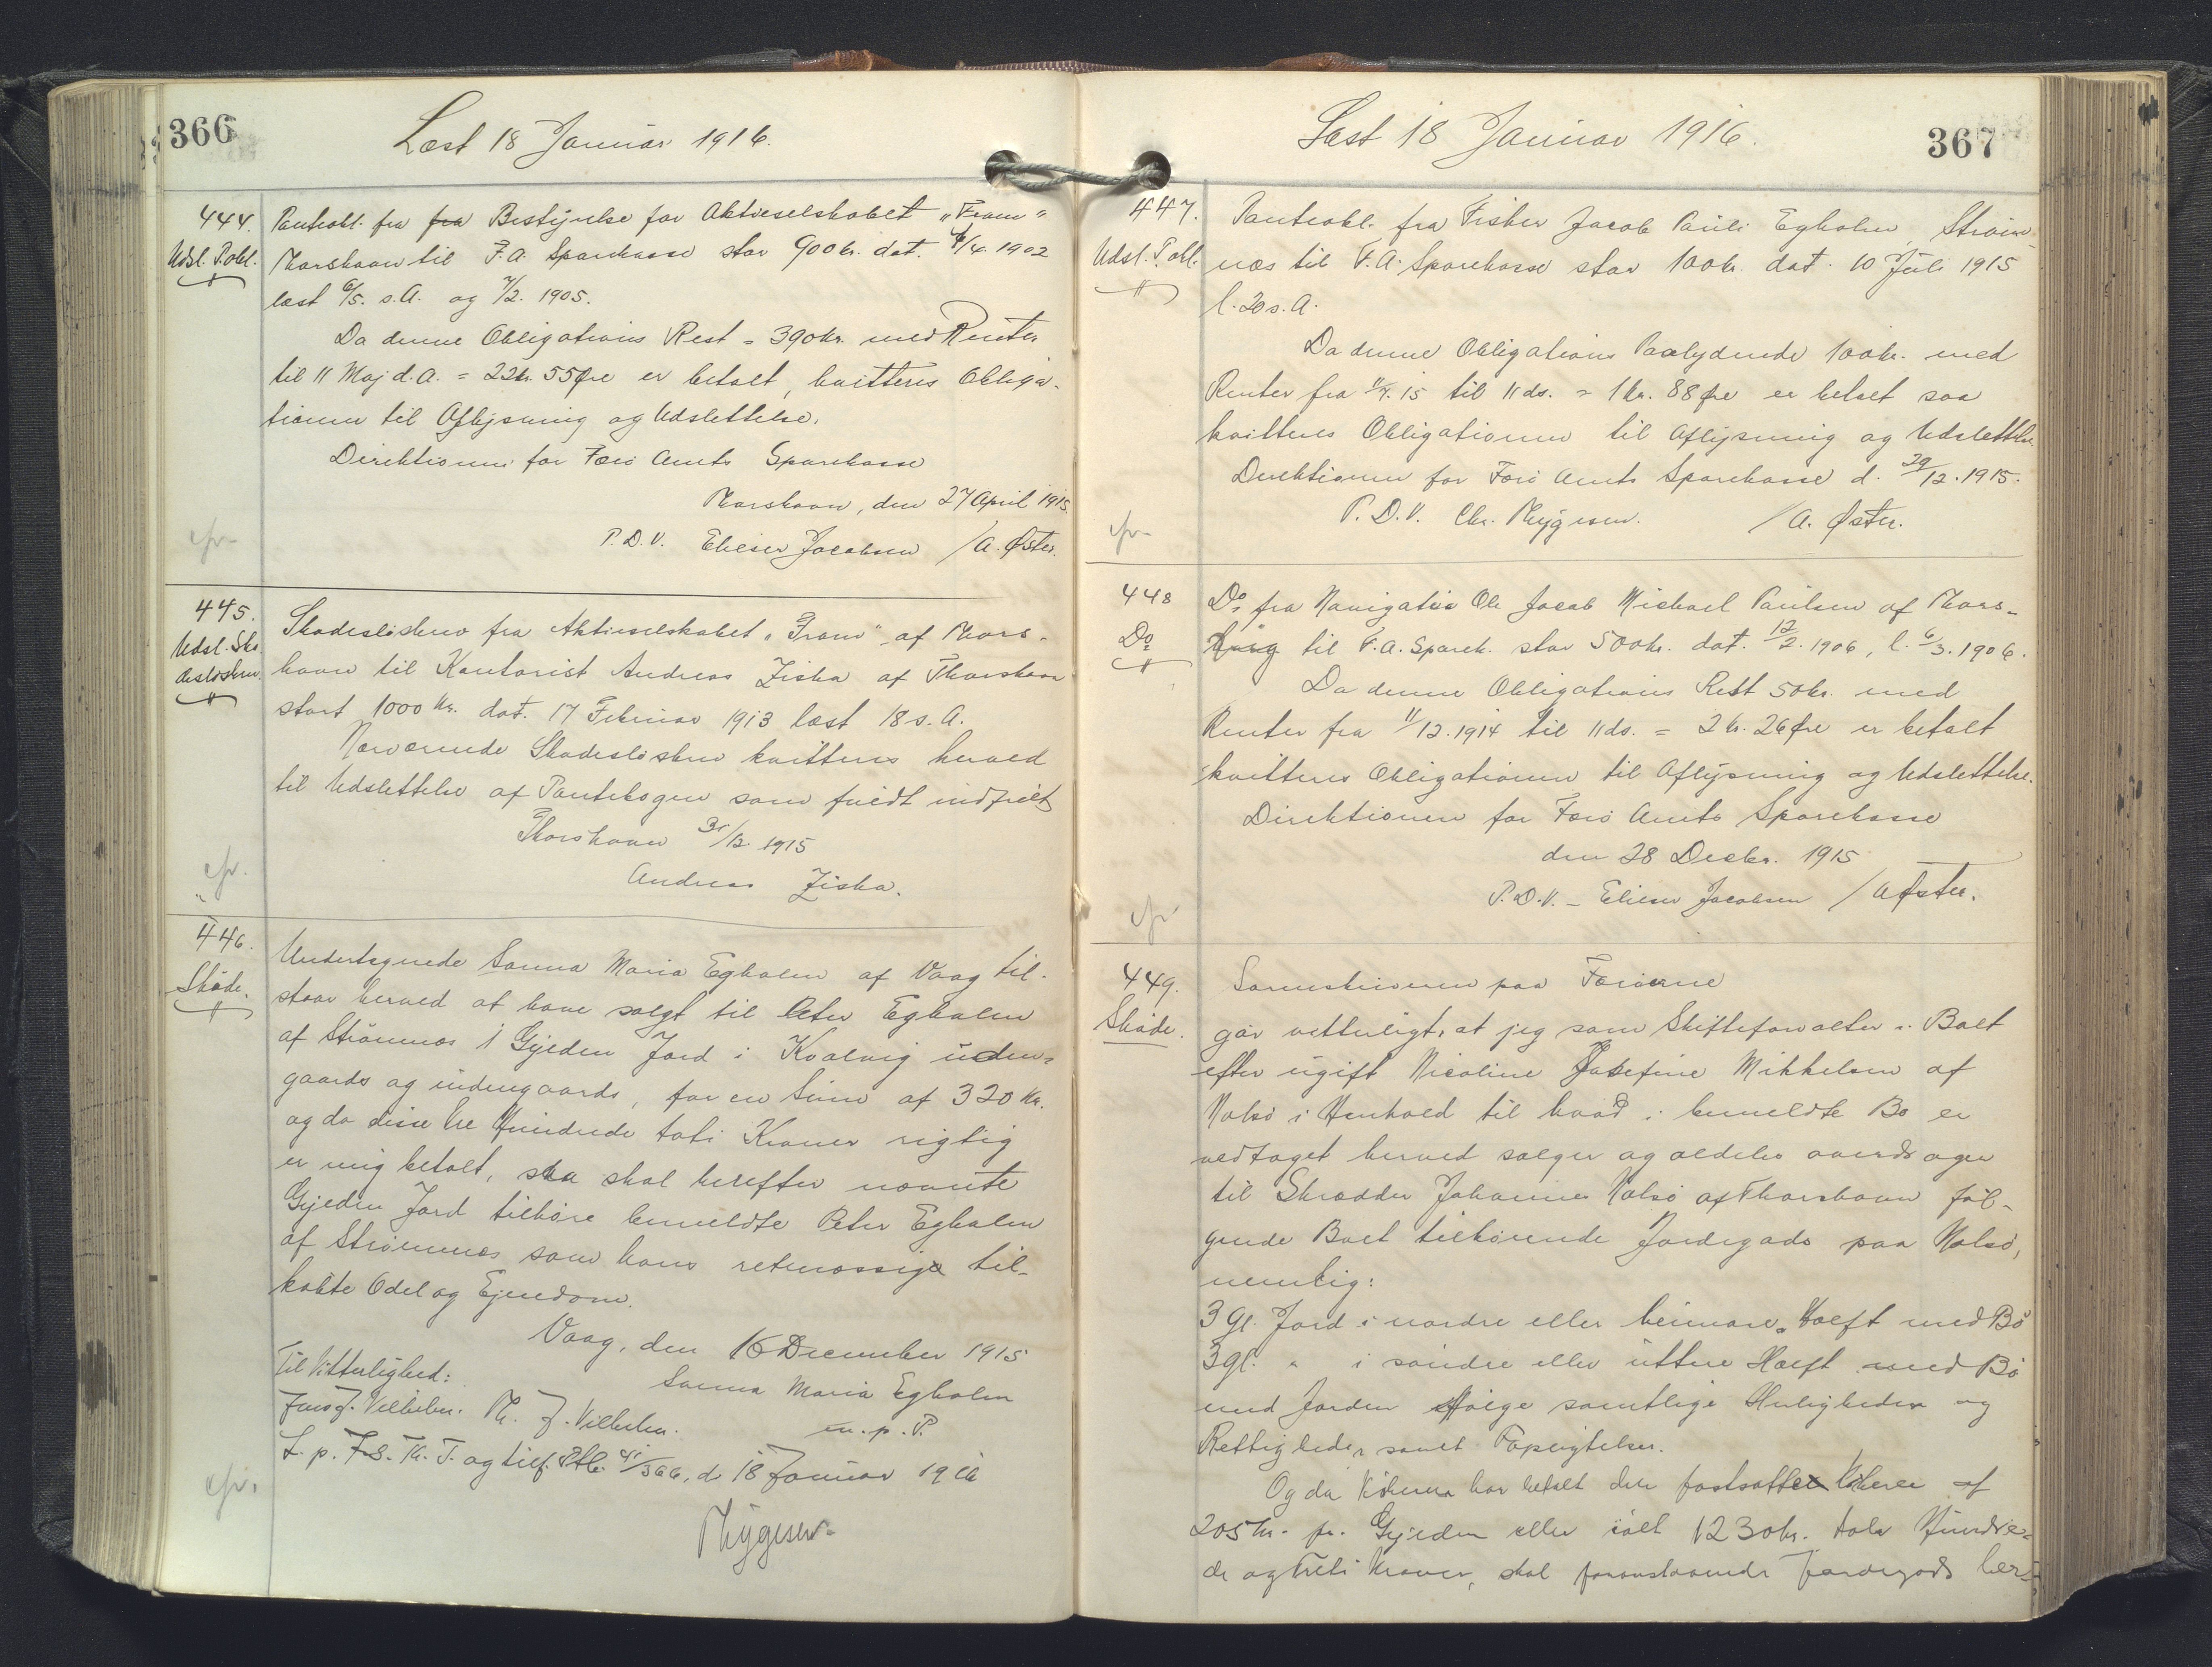 366
Læst 18 Januar 1916.
444. Panteobl. fra fra Bestyrelse for Aktieselskabet "Fram"
Udsl. P.obl. Thorshavn til F. A. Sparekasse stor 900 kr. dat. 4/4. 1902
læst 6/5. s.A. og 7/2. 1905.
Da denne Obligations Rest = 390 kr. med Renter
til 11 Maj d.A. = 22 kr. 55 Øre er betalt, kvitteres Obliga-
tionen til Aflysning og Udslettelse.
Direktionen for Færø Amts Sparekasse
Thorshavn, den 27 April 1915.
P.D.V. Elieser Jacobsen / A. Øster.
cfr.
445. Skadesløsbrev fra Aktieselskabet "Fram" af Thors-
Udsl. Ska-
desløsbrev. havn til Kontorist Andreas Ziska af Thorshavn
stort 1000 Kr. dat. 17 Februar 1913 læst 18 s.A.
Nærværende Skadesløsbrev kvitteres herved
til Udslettelse af Pantebogen som fuldt indfriet
Thorshavn 31/12. 1915
Andreas Ziska.
cfr.
446. Undertegnede Sanna Maria Egholm af Vaag til-
Skøde. staar herved at have solgt til Peter Egholm
af Strømnæs 1 Gylden Jord i Kvalvig uden-
gaards og indengaards, for en Sum af 320 Kr.
og da disse tre Hundrede toti Kroner rigtig
er mig betalt, saa skal herefter nævnte
Gylden Jord tilhøre bemeldte Peter Egholm
af Strømnæs som hans retmæssige til-
købte Odel og Ejendom.
Vaag, den 16 December 1915
Til Vitterlighed: Sanna Maria Egholm
Jens J. Vilhelm. Th. J. Vilhelm. m. p. P.
L. p. F.s. Th. T. og tilf. Ptb. 41/366, d. 18 Januar 1916
Thygesen
cfr.
Læst 18 Januar 1916.
367
447. Panteobl. fra Fisker Jacob Pauli Egholm, Strøm-
Udsl. P.obl. næs til F. A. Sparekasse stor 100 kr. dat. 10 Juli 1915
l. 20 s.A.
Da denne Obligations Paalydende 100 kr. med
Renter fra 11/7. 15 til 11 ds. = 1 kr. 88 Øre er betalt saa
kvitteres Obligationen til Aflysning og Udslettelse
Direktionen for Færø Amts Sparekasse d. 29/12. 1915.
P.D.V. Chr. Thygesen. / A. Øster.
cfr.
448 Do. fra Navigatør Ole Jacob Michael Paulsen af Thors-
Do. til F.A. Sparek. stor 500 kr. dat. 12/2. 1906, l. 6/3. 1906.
Da denne Obligations Rest 50 kr. med
Renter fra 11/12. 1914 til 11 ds. = 2 kr. 26 Øre er betalt
kvitteres Obligationen til Aflysning og Udslettelse.
Direktionen for Færø Amts Sparekasse
den 28 Decbr. 1915
P.D.V. - Elieser Jacobsen / A Øster.
cfr
449. Sorenskriveren paa Færøerne
Skøde. gør vitterligt, at jeg som Skifteforvalter i Boet
efter ugift Nicoline Josefine Mikkelsen af
Nolsø i Henhold til hvad i bemeldte Bo er
vedtaget herved sælger og aldeles overdrager
til Skrædder Johannes Nolsø af Thorshavn føl-
gende Boet tilhørende Jordegods paa Nolsø,
nemlig:
3 Gl. Jord i nordre eller heimare Hælft med Bø
3 gl. " i søndre eller uttere Hælft med Bø
med Jorden følge samtlige Herligheder og
Rettigheder samt Forpligtelser.
Og da Køberen har betalt den fastsatte Købesum af
205 kr. pr. Gylden eller ialt 1230 kr. tolv Hundre-
de og Treti Kroner, skal foranstaaende Jordegods her-